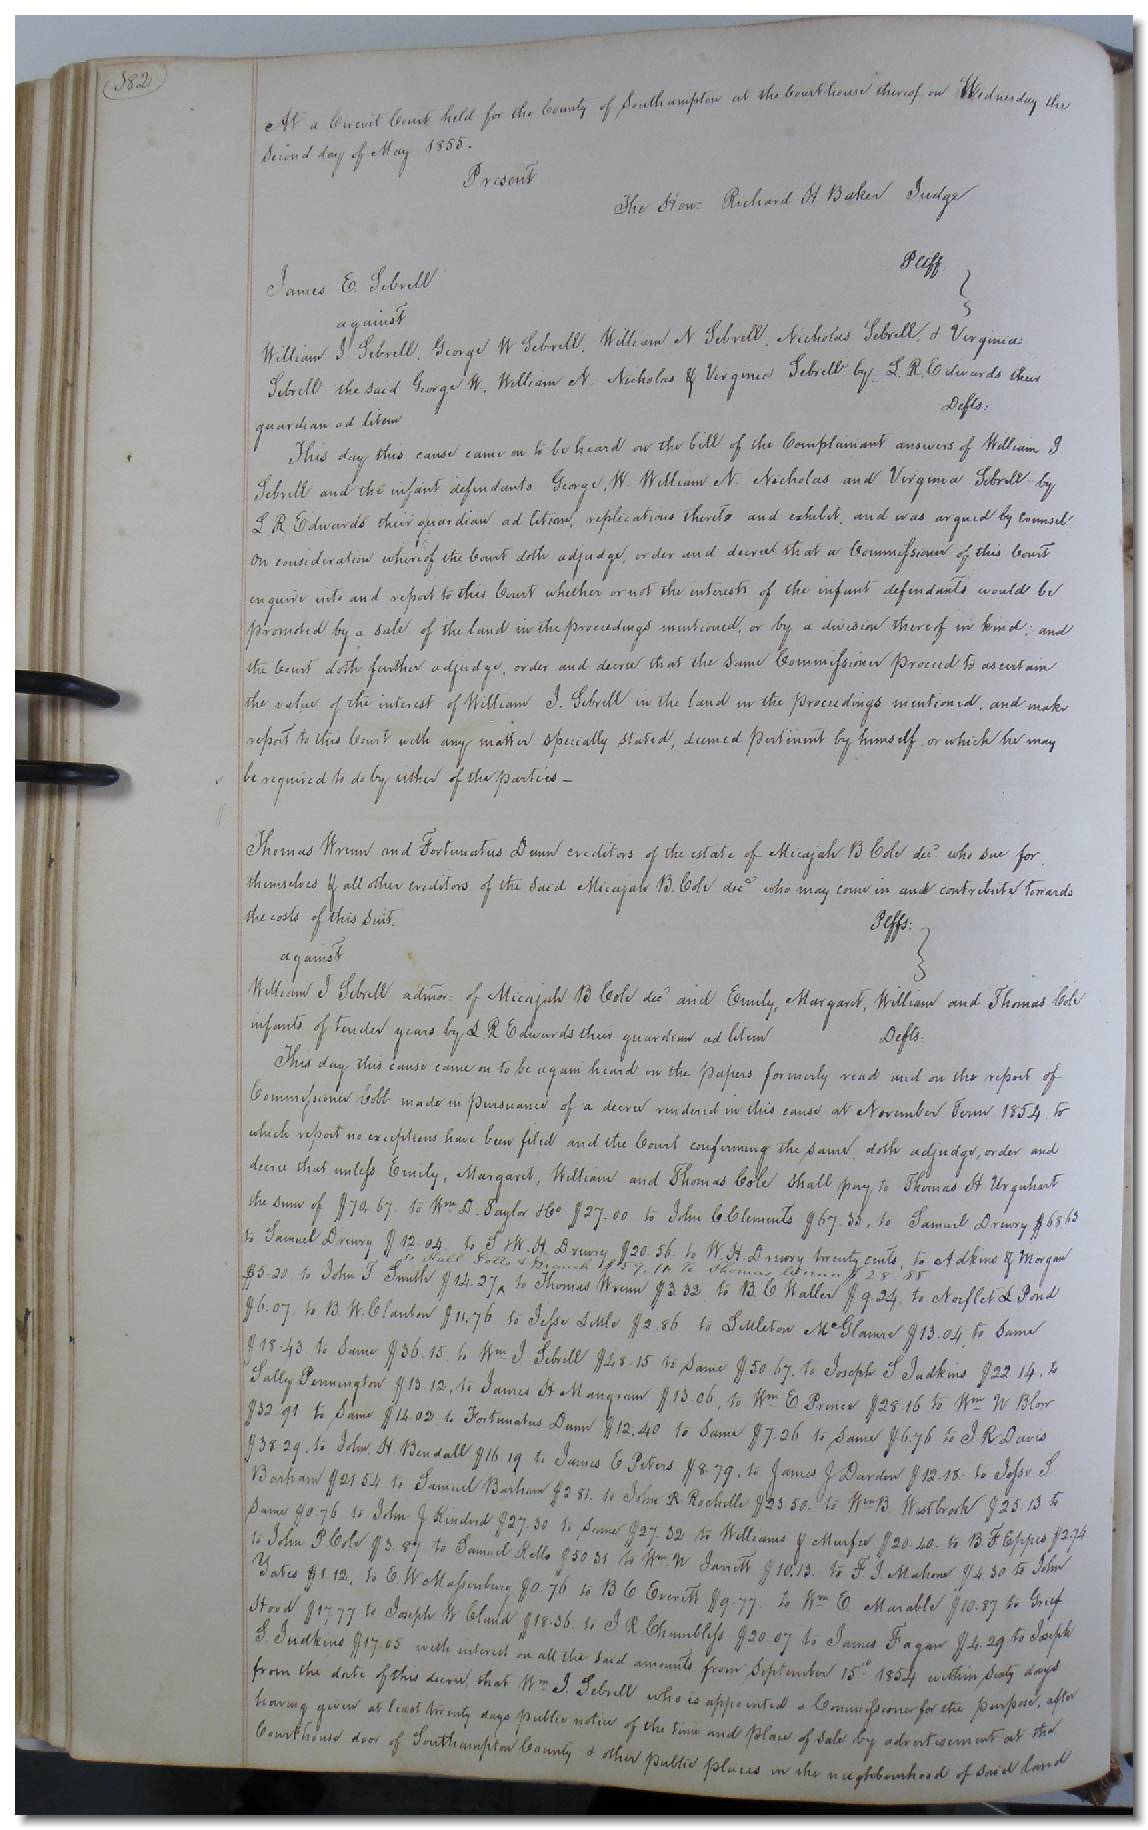 382
At a Circuit Court held for the County of Southampton at the Courthouse thereof on Wednesday the
Second day of May 1855.
Present
The Hon: Richard H Baker Judge
Pltff
James E. Sebrell
against
William J Sebrell, George W Sebrell, William N Sebrell, Nicholas Sebrell, & Virginia
Sebrell the said George W, William N. Nicholas & Virginia Sebrell by L. R. Edwards their
guardian ad litem
Defts:
This day this cause came on to be heard on the bill of the Complainant answers of William J
Sebrell and the infant defendants George, W. William N. Nicholas and Virginia Sebrell by
L R. Edwards their guardian ad litem, replications thereto and exhibit, and was argued by counsel
On consideration whereof the Court doth adjudge, order and decree that a Commissioner of this Court
enquire into and report to this Court whether or not the interests of the infant defendants would be
promoted by a sale of the land in the proceedings mentioned, or by a division thereof in kind; and
the Court doth further adjudge, order and decree that the same Commissioner proceed to ascertain
the value of the interest of William J. Sebrell in the land in the proceedings mentioned, and make
report to this Court with any matter specially stated, deemed pertinent by himself or which he may
be required to do by either of the parties —
Thomas Wrenn and Fortunatus Dunn creditors of the estate of Micajah B Cole decd who sue for
themselves & all other creditors of the said Micajah B. Cole decd who may come in and contribute towards
the costs of this suit.
Pltffs:
against
William J Sebrell admor: of Micajah B Cole decd and Emily, Margaret, William and Thomas Cole
infants of tender years by L R Edwards their guardian ad litem
Defts.
This day this cause came on to be again heard on the papers formerly read and on the report of
Commissioner Cobb made in pursuance of a decree rendered in this cause at November Term 1854. to
which report no exceptions have been filed and the Court confirming the same, doth adjudge, order and
decree that unless Emily, Margaret, William and Thomas Cole shall pay to Thomas H Urquhart
the sum of $74.67. to Wm D. Taylor &Co $27.00 to John C. Clements $67.33, to Samuel Drewry $68.63
to Samuel Drewry $12.04. to S &W. H. Drewry $20.56. to W. H. Drewry twenty cents, to Adkins & Morgan
$59.10 to Thomas Wrenn $28.88
$5.20, to John T Smith $14.27, to Thomas Wrenn $3.32 to B. C Waller $9.24, to Norflet & Pond
$6.07. to B. W. Clanton $11.76 to Jesse Little $2.86 to Littleton McGlamre $13.04, to Same
$18.43 to Same $36.15. to Wm J Sebrell $48.15 to Same $50 67. to Joseph S Judkins $22 14. to
Sally Pennington $13.12, to James H Mangram $13.06, to Wm E Prince $28.16 to Wm N Blow
$32.91 to Same $14.02 to Fortunatus Dunn $12.40 to Same $7.26 to Same $6.76 to J R Davis
$38 29, to John. H. Bendall $16.19 to James C Peters $8.79, to James J Darden $12.18. to Jesse S
Barham $21 54 to Samuel Barham $2 81. to John R Rochelle $23.50. to Wm B. Westbrook $25.13 to
Same $0.76 to John J Kindred $27.30 to Same $27.32 to Williams & Murfee $20.40. to B. F Eppes $2.74.
to John P Cole $3.87 to Samuel Kello $50.31 to Wm. N Jarrett $10.13. to F. J. Mahone $4.30 to John
Yates $1 12, to E. W Massenburg $0.76 to B C Everett $9.77. to Wm E. Marable $10.87 to Greif
Hood $17.77 to Joseph W Claud $18.36. to J. R Chambliss $20.07 to James Fagan $4.29 to Joseph
S. Judkins $17.05 with interest on all the said amounts from September 15th 1854 within sixty days
from the date of this decree, that Wm J. Sebrell who is appointed a Commissioner for the purpose, after
having given at least twenty days public notice of the time and place of sale by advertisement at the
Courthouse door of Southampton County & other public places in the neighbourhood of said land